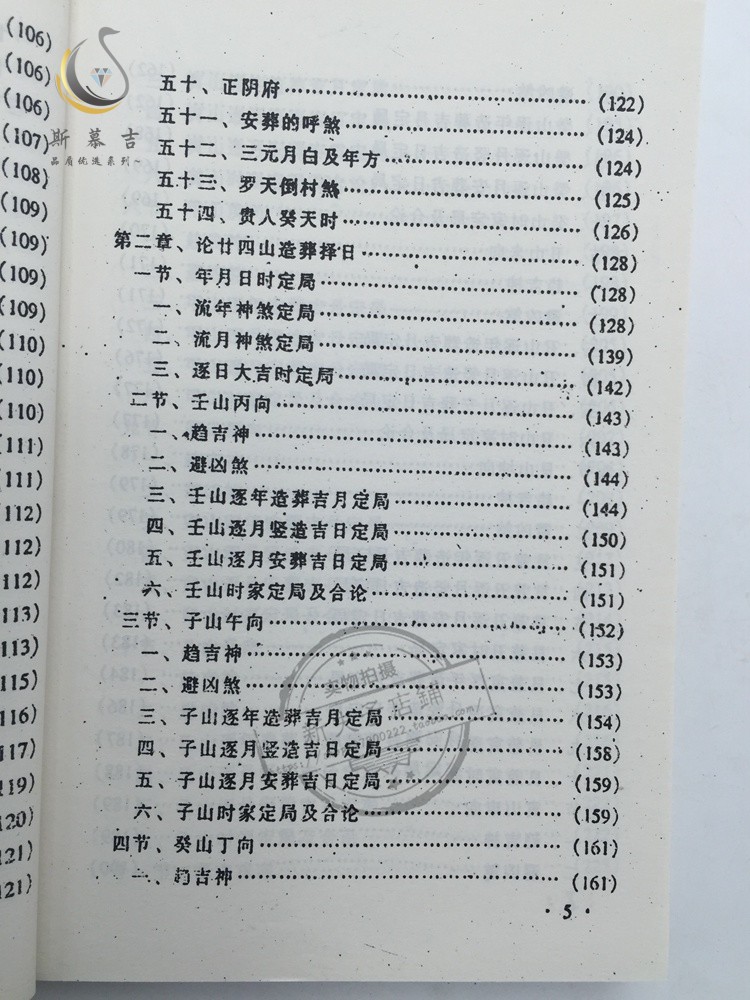 (106)
(106)
(106)
(107)
(108)
(109)
(109)
(109)
(109)
(110)
(110)
(110)
(111)
(111)
(112)
(112)
(112)
(113)
(113)
(115)
(116)
117)
119)
120)
121)
121)
斯慕吉
品质优选系列~
五十、正阴府……(122)
五十一、安葬的呼煞……(124)
五十二、三元月白及年方……(124)
五十三、罗天倒村煞……(125)
五十四、贵人癸天时……(126)
第二章、论廿四山造葬择日……(128)
一节、年月日时定局……(128)
一、流年神煞定局……(128)
二、流月神煞定局……(139)
三、逐日大吉时定局……(142)
二节、壬山丙向……(143)
一、趋吉神……(143)
二、避凶煞……(144)
三、壬山逐年造葬吉月定局……(144)
四、壬山逐月竖造吉日定局……(150)
五、壬山逐月安葬吉日定局……(151)
六、壬山时家定局及合论……(151)
三节、子山午向……(152)
一、趋吉神……(153)
二、避凶煞……(153)
三、子山逐年造葬吉月定局……(154)
四、子山逐月竖造吉日定局……(158)
五、子山逐月安葬吉日定局……(159)
六、子山时家定局及合论……(159)
四节、癸山丁向……(161)
一、趋吉神……(161)
·5·
实物拍摄